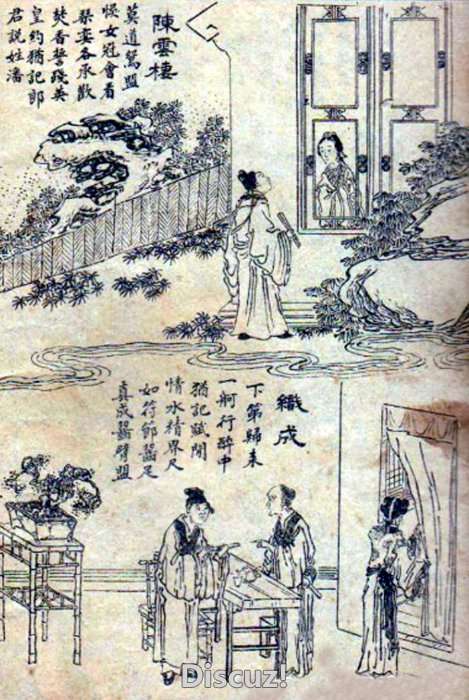 陳雲棲
莫道鴛盟
怪女冠會看
各承歡
焚香誓踐英
皇約猶記郎
君說姓潘
織成
下第歸來
一舸行醉中
猶記賦閒
情水精界尺
如符節齧足
真成齧臂盟
Discuz!